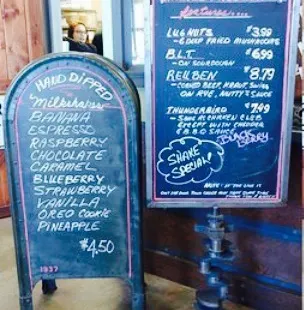 HAND DIPPED
Milkshakes
BANANA
ESPRESSO
RASPBERRY
CHOCOLATE
CARAMEL
BLUEBERRY
STRAWBERRY
VANILLA
OREO COOKIE
PINEAPPLE
$4.50
1937
features
LUGNUTS $3.99
- 6 DEEP FRIED MUSHROOMS
B.L.T. $6.99
- ON SOURDOUGH
REUBEN $8.79
- CORNED BEEF, KRAUT, SWISS
ON RYE, NUTTY SAUCE
THUNDERBIRD $7.49
CHICKEN CLUB
WITH CHEDDAR
& B.B.Q SAUCE
BLACKBERRY
SHAKE
SPECIAL!